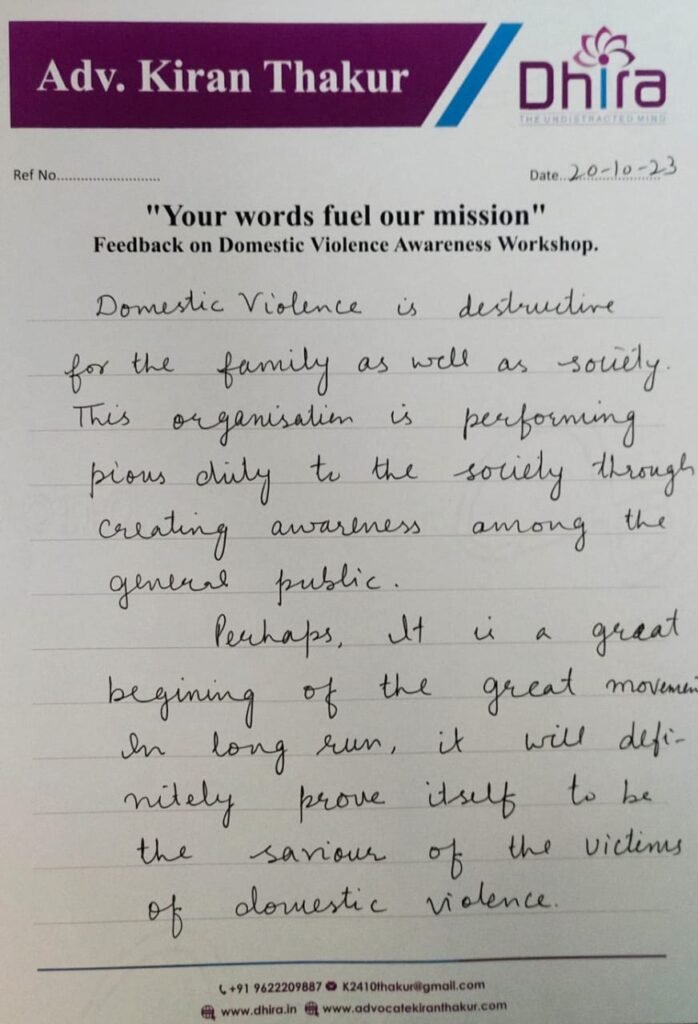 Adv. Kiran Thakur
Dhira
THE UNDISTRACTED MIND
Ref No............................
Date..20-10-23
"Your words fuel our mission"
Feedback on Domestic Violence Awareness Workshop.
Domestic Violence is destructive
for the family as well as society.
This organisation is performing
pious duty to the society through
creating awareness among the
general public.
Perhaps, It is a great
begining of the great movemen
In long run, it will defi-
nitely prove itself to be
the saviour of the victims
of domestic violence.
+91 9622209887 K2410thakur@gmail.com
www.dhira.in www.advocatekiranthakur.com